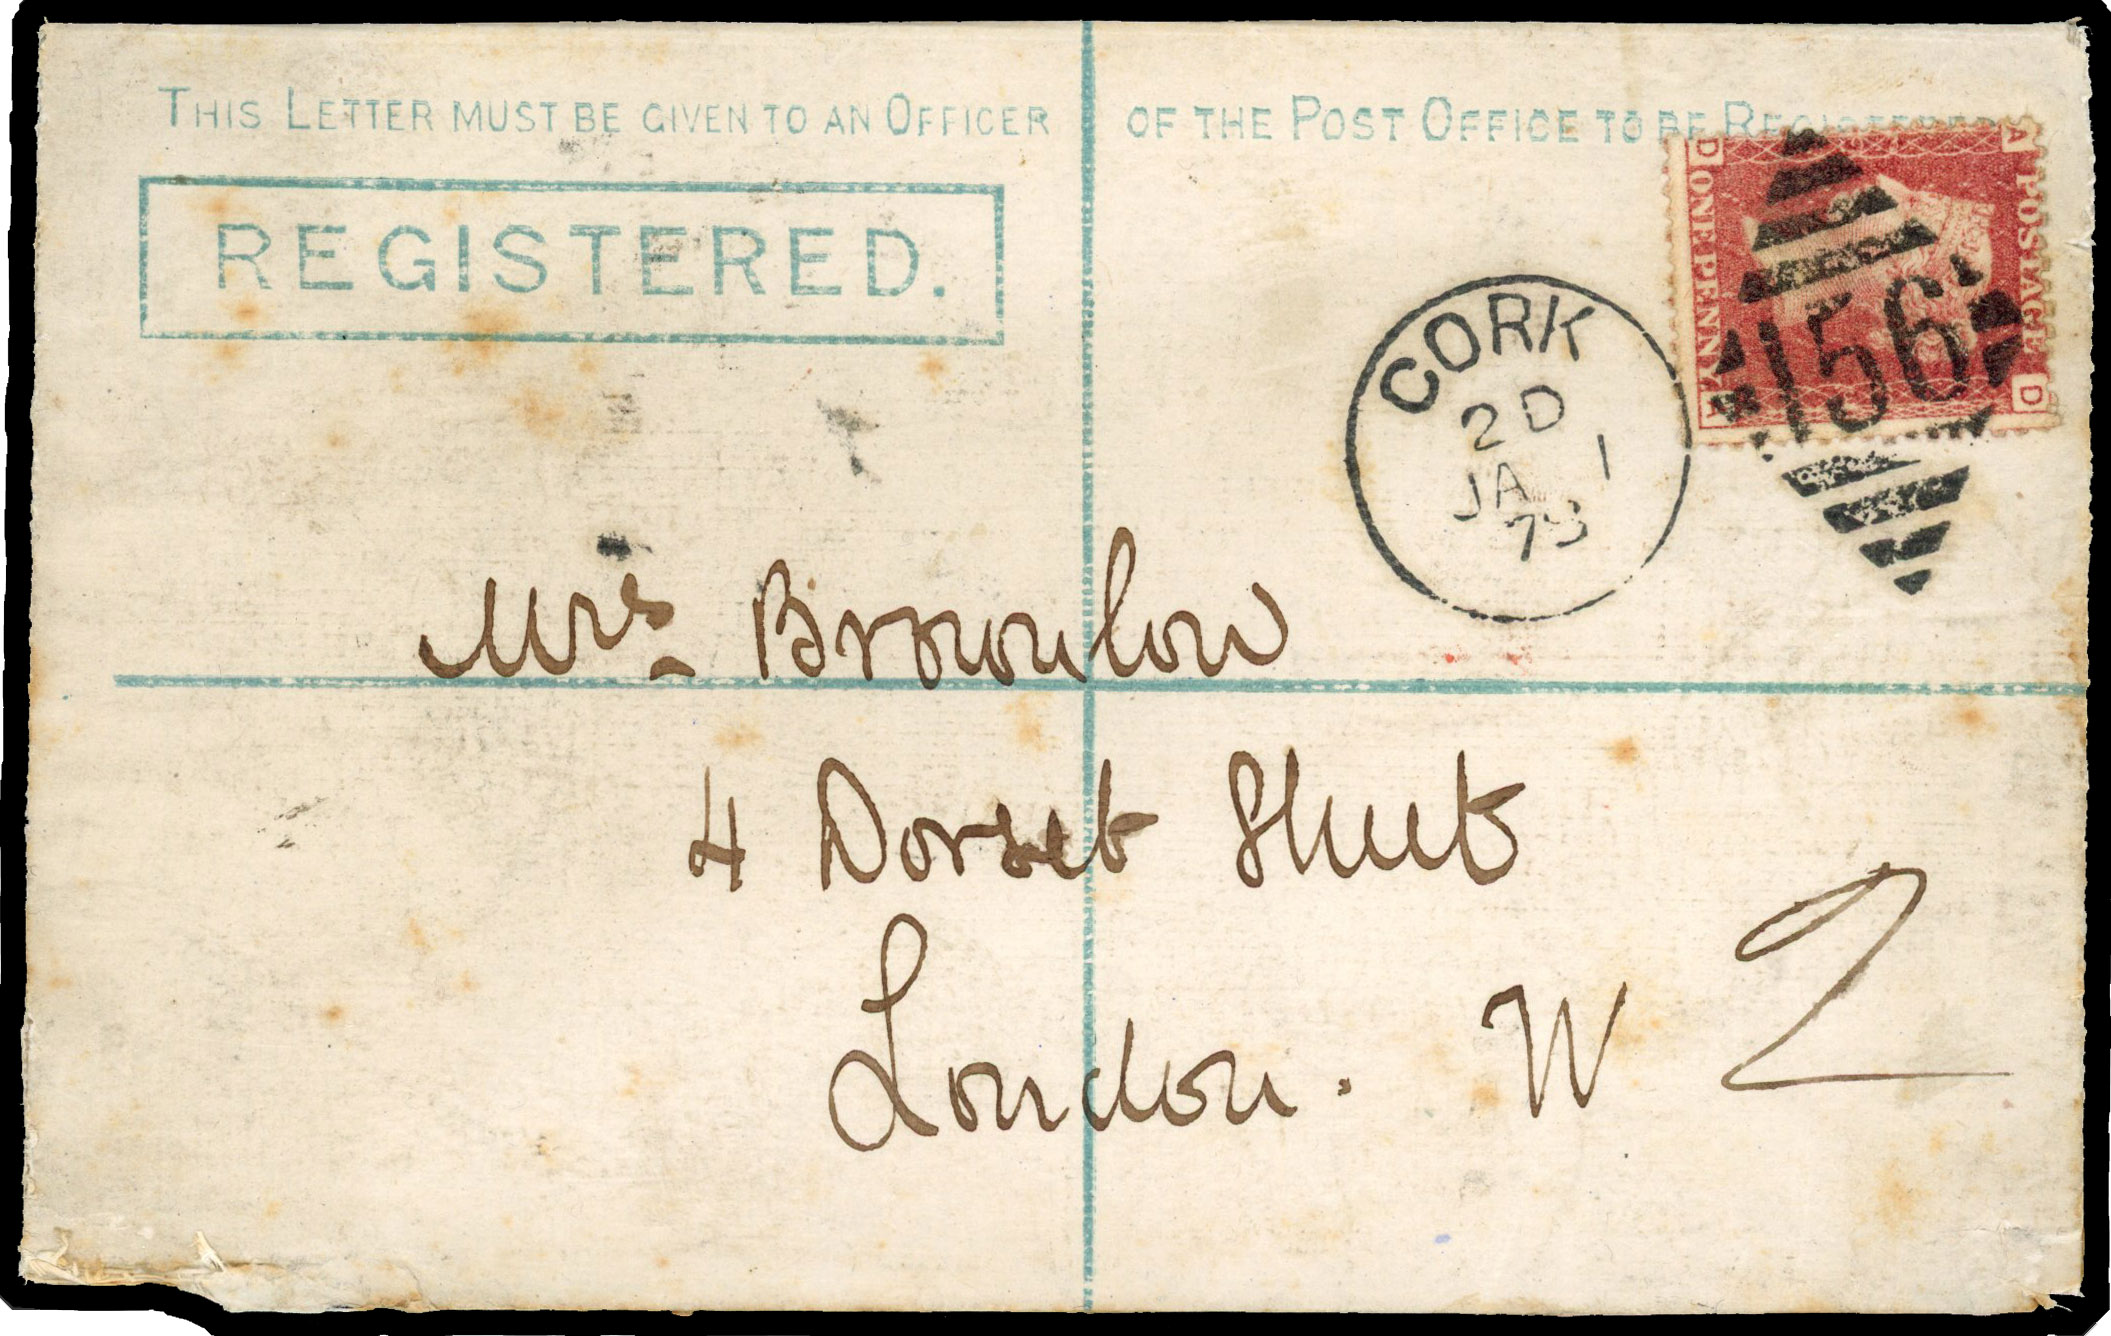 THIS LETTER MUST BE GIVEN TO AN OFFICER OF THE POST OFFICE TO BE REGISTERED
REGISTERED.
A POSTAGE D
D ONE PENNY A
156
CORK
2D
JA 1
78
Mrs. Brownlow
4 Dorset Street
London. W
2